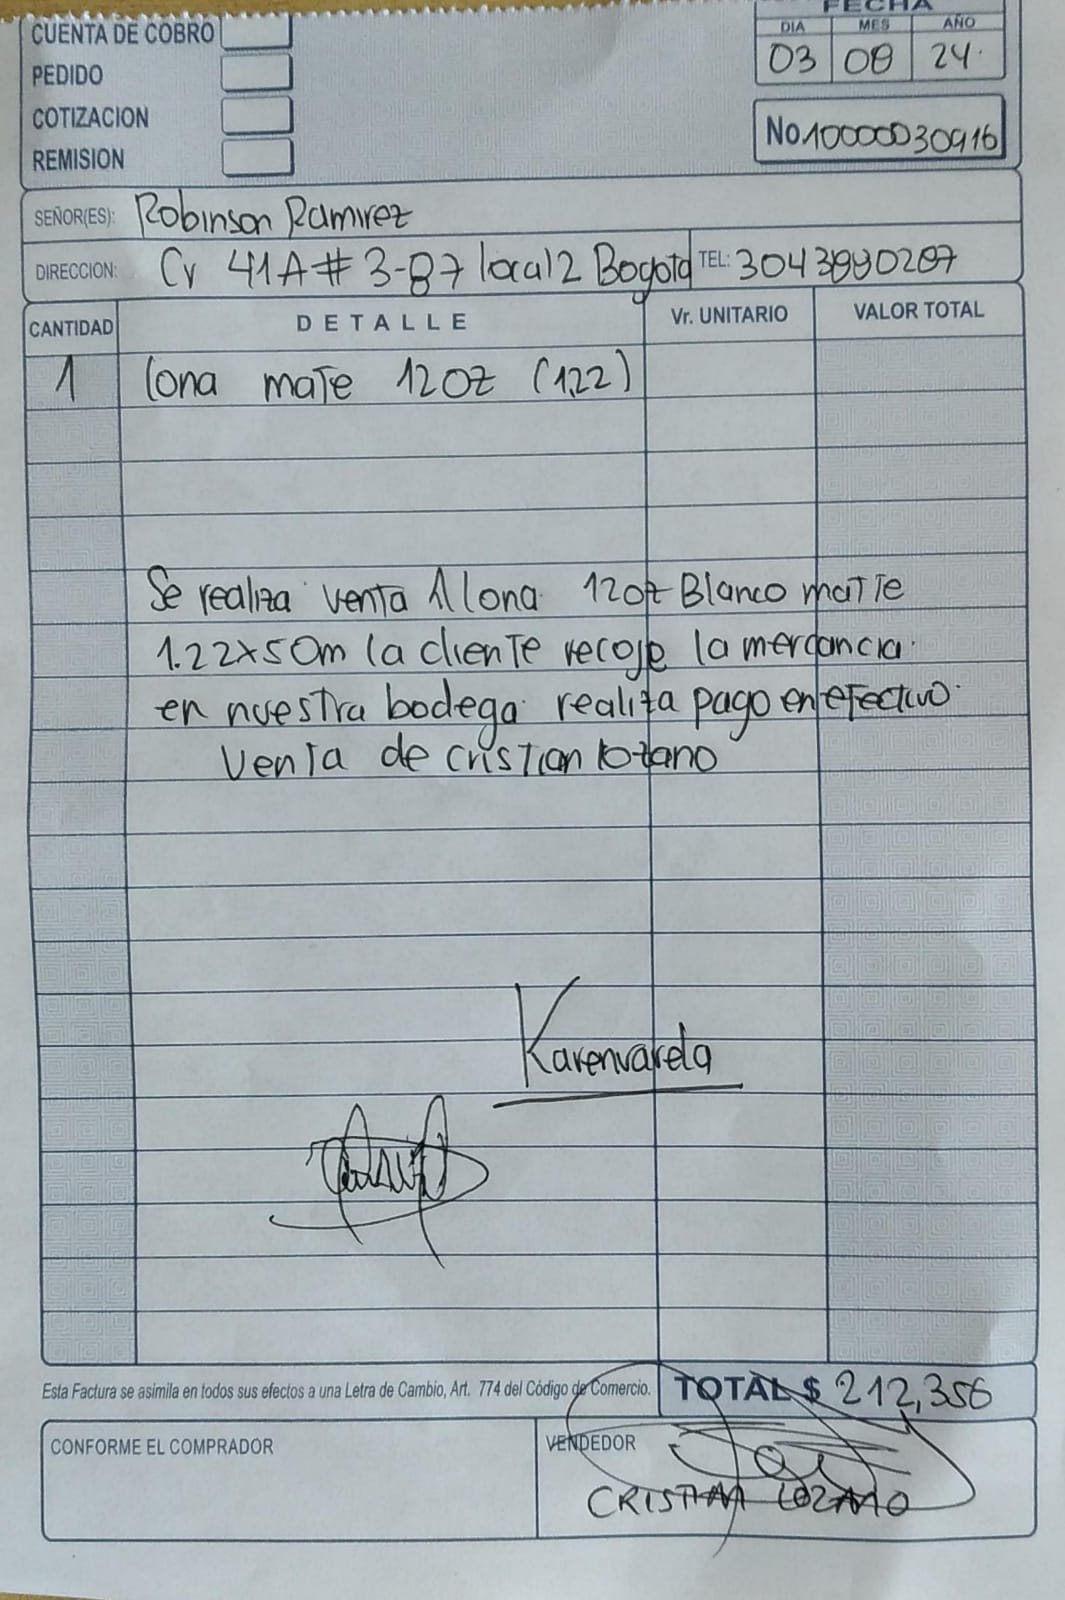 CUENTA DE COBRO
PEDIDO
COTIZACION
REMISION
FECHA
DIA MES AÑO
03 08 24.
No.10000030916
SEÑOR(ES): Robinson Ramirez
DIRECCION: Cr 41A # 3-87 local 2 Bogota TEL: 3043880287
CANTIDAD DETALLE Vr. UNITARIO VALOR TOTAL
1 lona mate 12oz (1,22)
Se realiza venta 1 lona 12oz Blanco matte
1.22x50m la cliente recoje la mercancia.
en nuestra bodega. realiza pago en efectivo.
Venta de cristian lozano
Karen varela
Esta Factura se asimila en todos sus efectos a una Letra de Cambio, Art. 774 del Código de Comercio. TOTAL $ 212,356
CONFORME EL COMPRADOR
VENDEDOR
CRISTIAN LOZANO